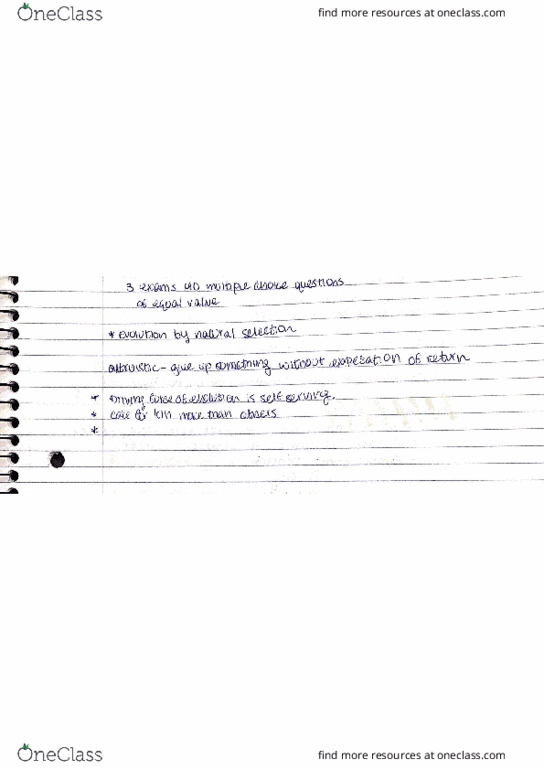 OneClass
find more resources at oneclass.com
3 exams 40 multiple choice questions
of equal value
* evolution by natural selection
altruistic - give up something without expectation of return
* driving force of evolution is self serving.
* care for kin more than others
*
OneClass
find more resources at oneclass.com